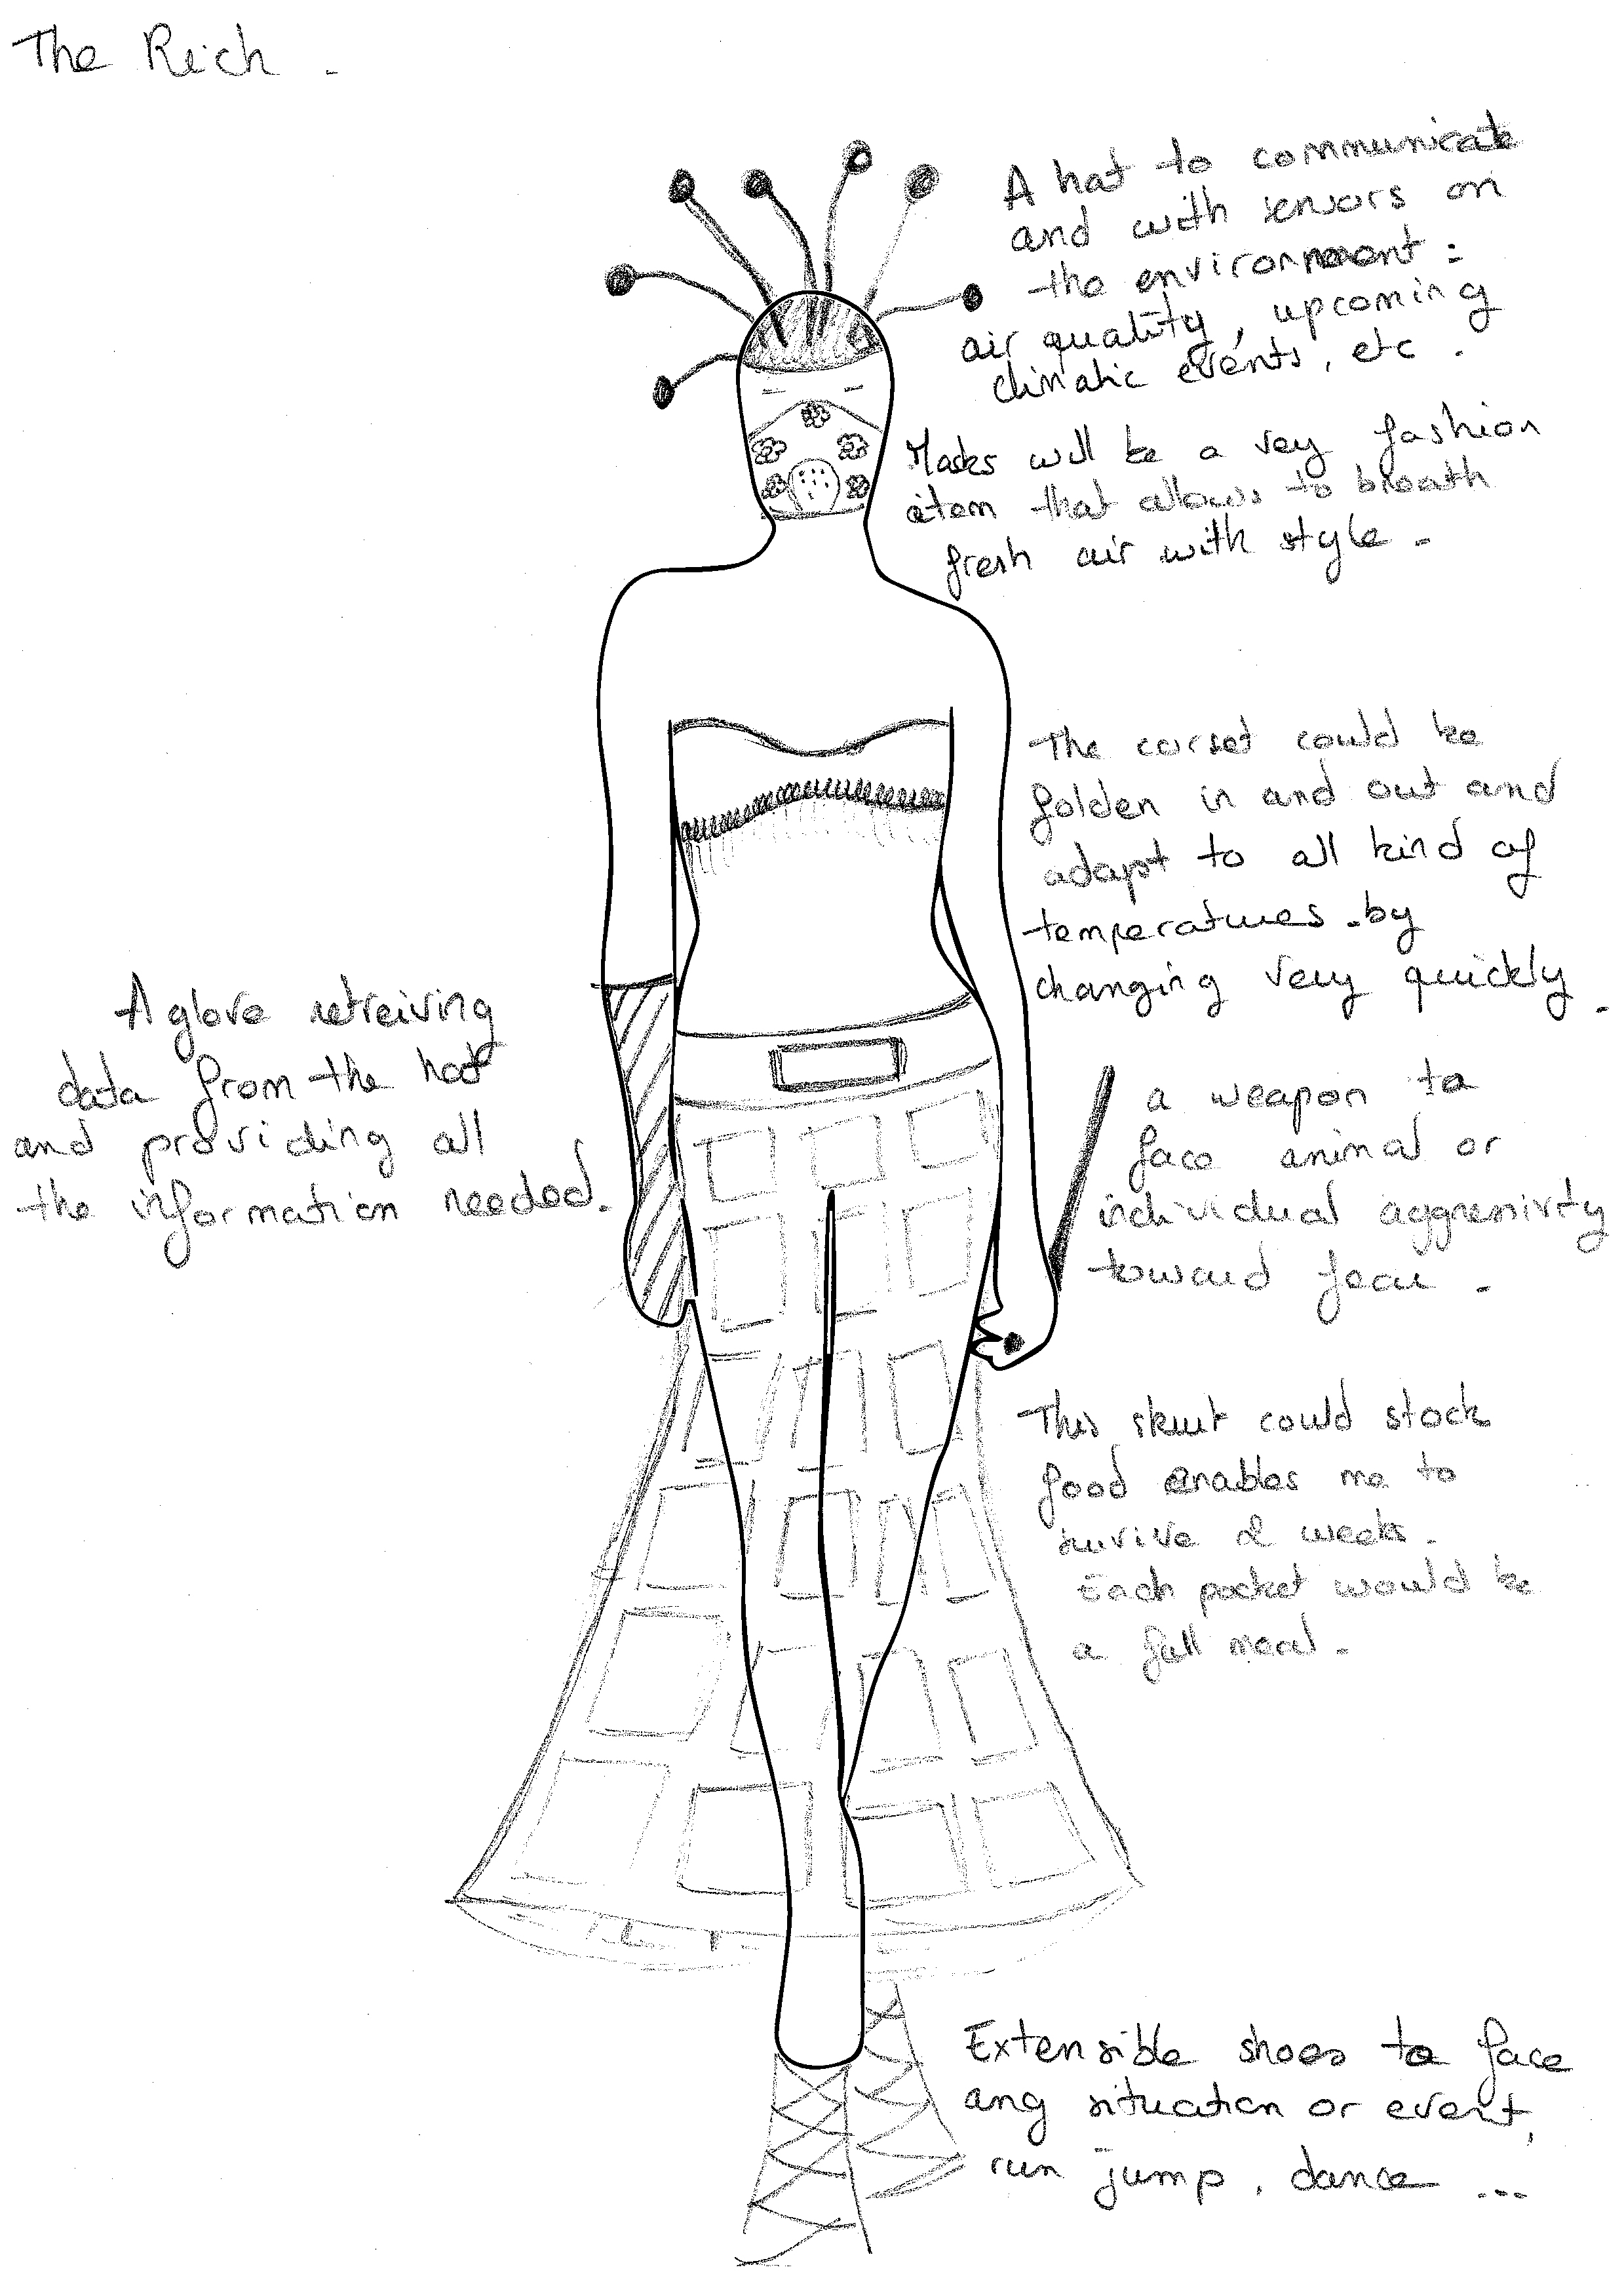 The Rich -
A hat to communicate
and with sensors on
the environment :
air quality, upcoming
climatic events, etc .
Masks will be a vey fashion
item that allows to breath
fresh air with style -
The corset could be
folden in and out and
adapt to all kind of
temperatures . by
changing very quickly .
A glove retreiving
data from the hat
and providing all
the information needed.
a weapon to
face animal or
individual aggressivity
toward fear -
This skirt could stock
food enables me to
survive 2 weeks -
Each pocket would be
a full meal -
Extensible shoes to face
any situation or event,
run jump, dance ...